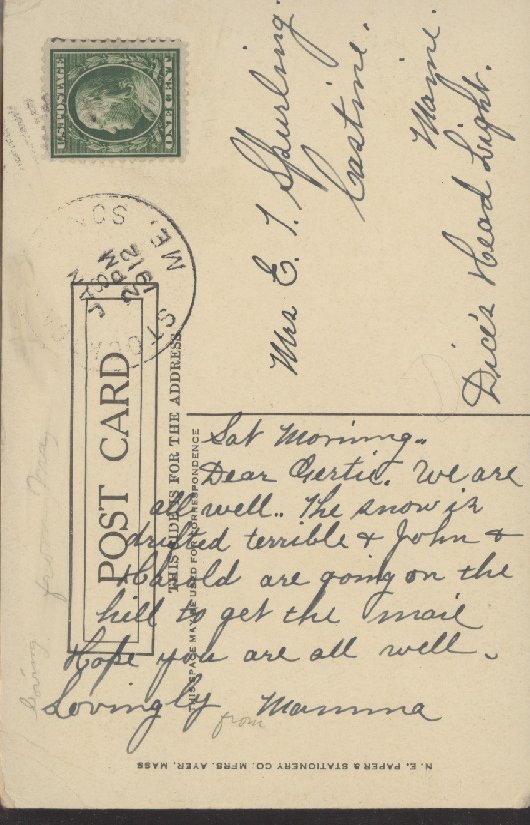 U.S. POSTAGE
ONE CENT
JAN
8 PM
1912
ME.
Mrs E. T. Spurling
Castine.
Maine.
Dice's Head Light.
POST CARD
THIS SIDE IS FOR THE ADDRESS
THIS SPACE MAY BE USED FOR CORRESPONDENCE
Sat Morning..
Dear Gertie. We are
all well.. The snow is
drifted terrible & John &
Harold are going on the
hill to get the mail
Hope you are all well.
Lovingly
from Mamma
N. E. PAPER & STATIONERY CO. MFRS. AYER, MASS